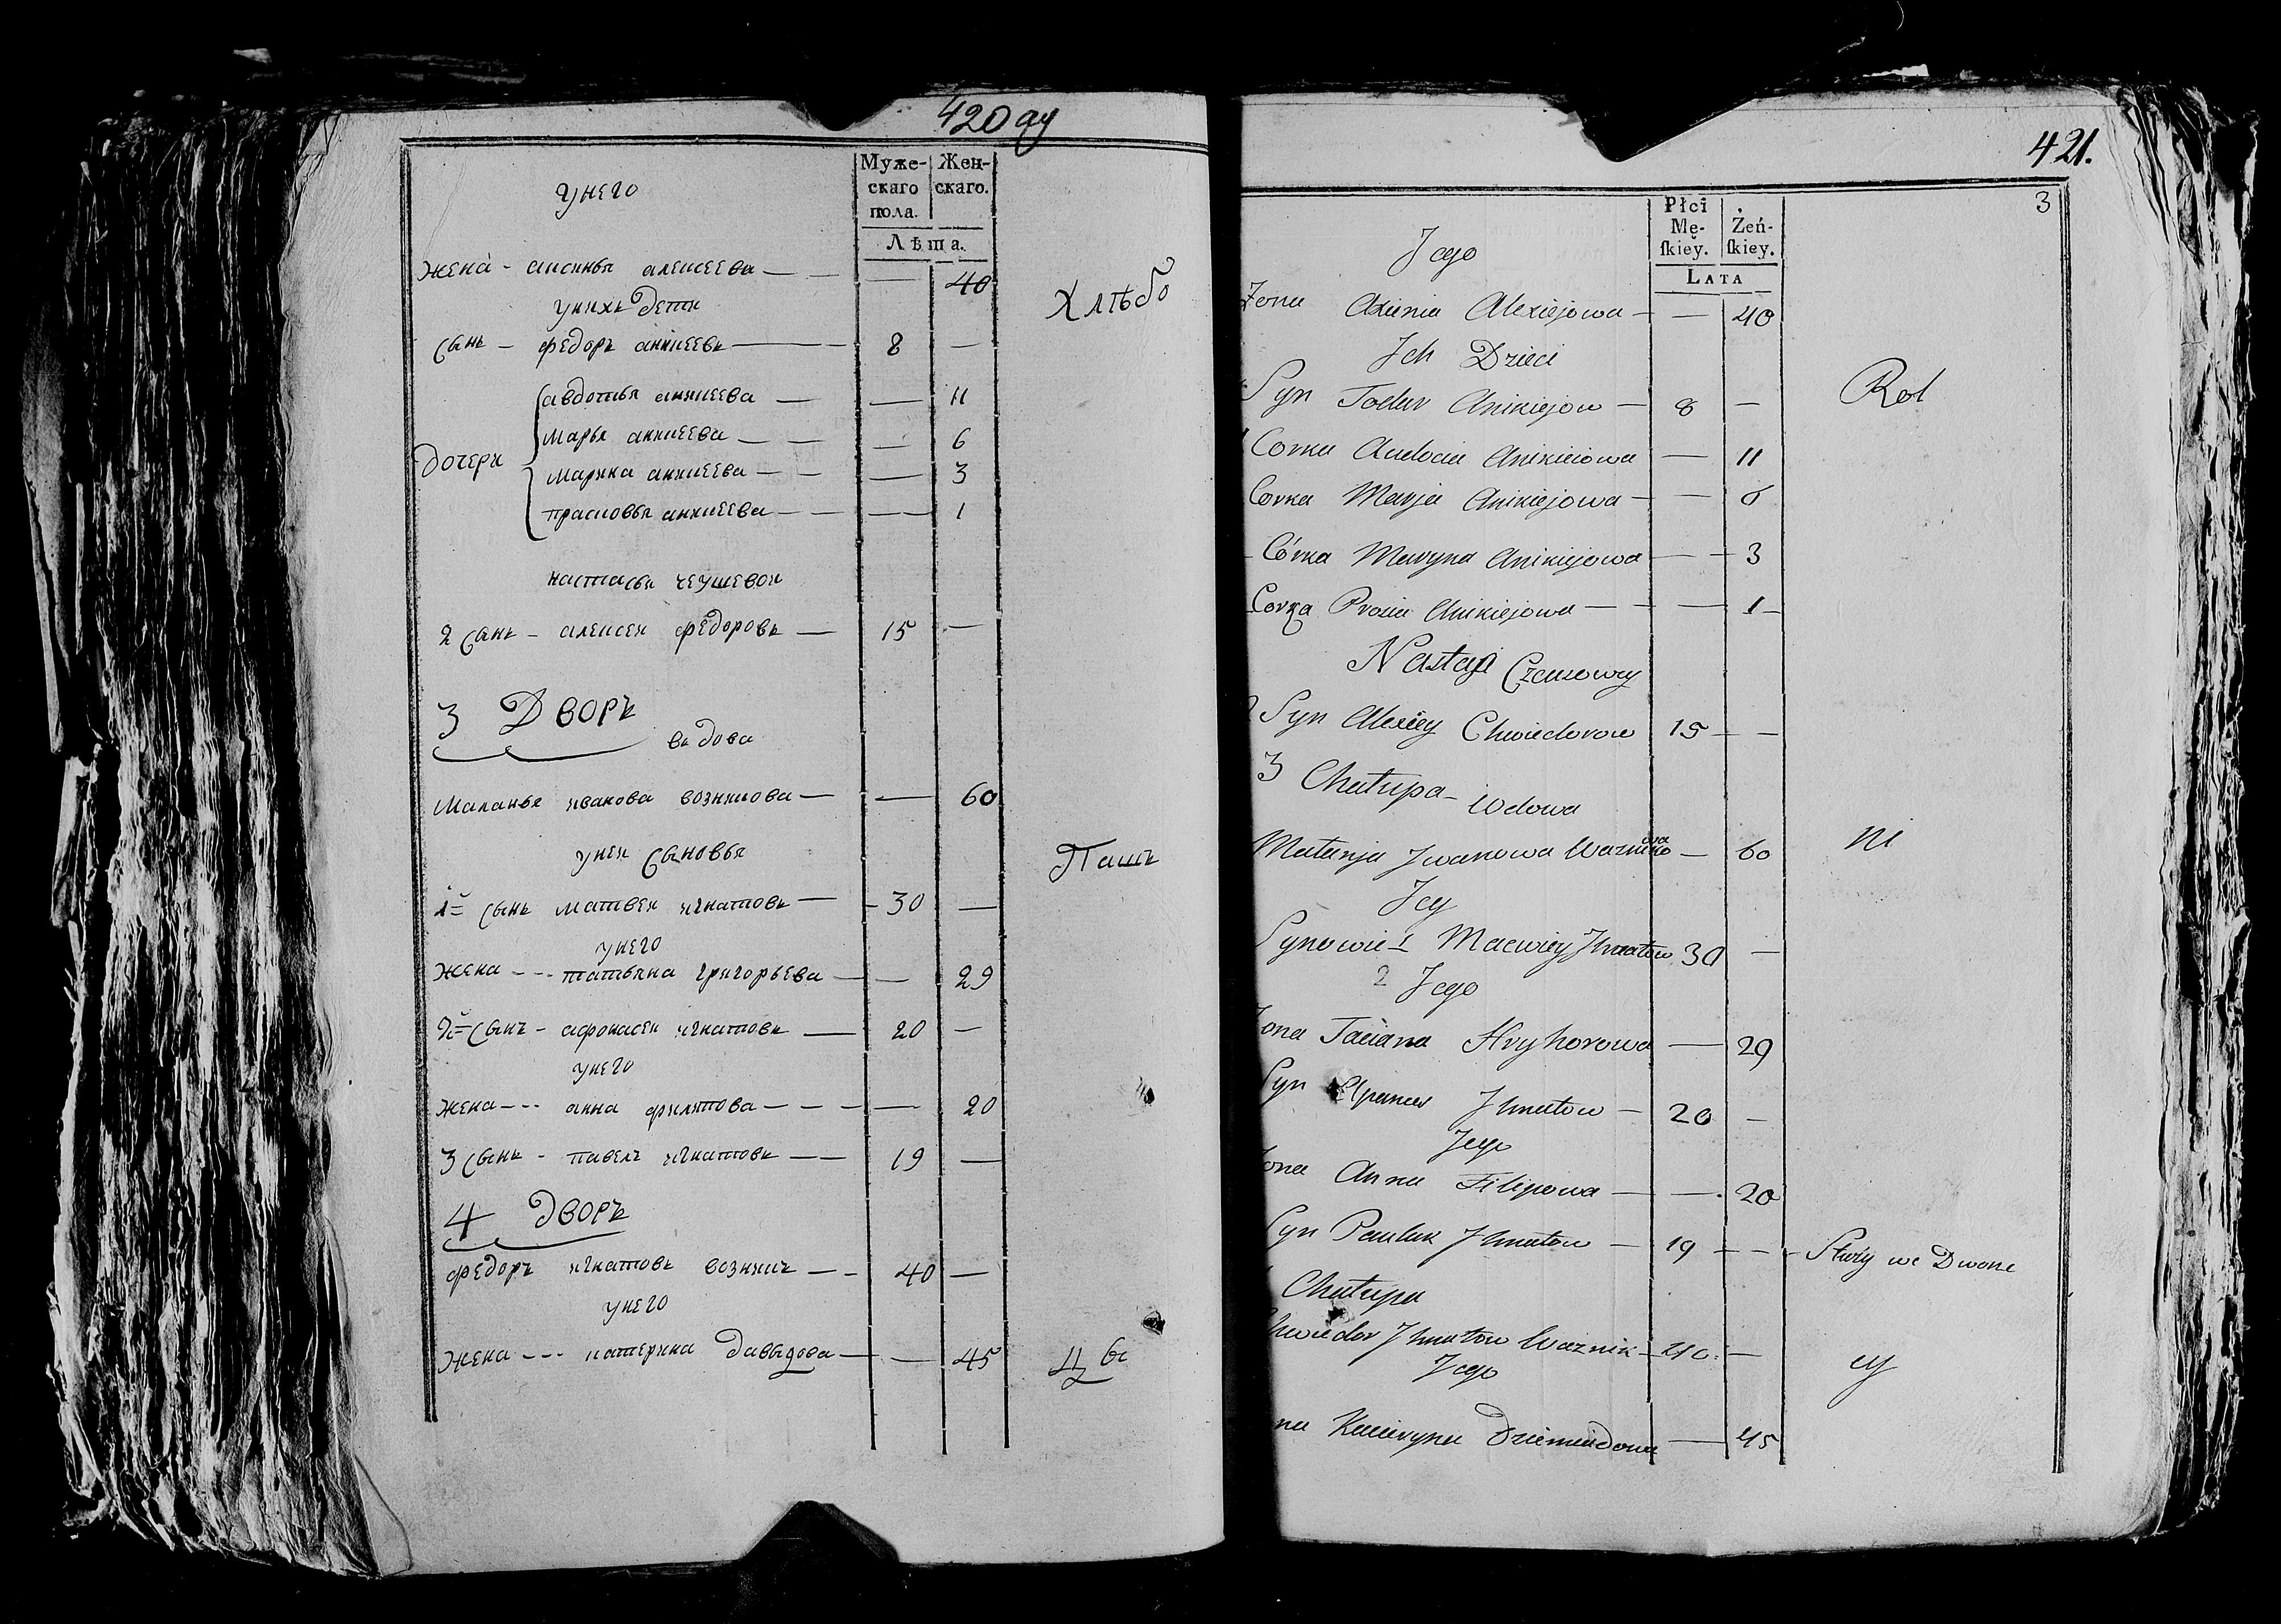 420 ду
Муже-
скаго
пола.
Жен-
скаго.
Лѣта.
унего
жена - аксинья алексеева — — — 40
унихъ дети
Хлѣбо
сынъ - федоръ аникеевъ — 8 —
авдотья аникеева — — 11
марья аникеева — — — 6
дочери
марина аникеева — — — 3
прасковья аникеева — — — 1
настасьи чеушевои
2 сынъ - алексеи федоровъ — 15 —
3 Дворъ
въдова
маланья иванова возникова — — 60
унея сыновья
Пашъ
1й сынъ матвеи игнатовъ — 30 —
унего
жена --- татьяна григорьева — — 29
2й сынъ - афонасеи игнатовъ — 20 —
унего
жена --- анна филипова — — — — 20
3 сынъ - павелъ игнатовъ — — 19 —
4 Дворъ
федоръ игнатовъ возникъ — - 40 —
унего
жена --- катерина давыдова — — 45
Цы
421.
3
Płci
Mę-
ſkiey.
Żeń-
ſkiey.
LATA
Jego
Zona Axienia Alexiejowa — — 40
Jch Dzieci
Rol
Syn Todur Anikiejow — 8 —
Corka Audocia Anikieiowa — 11
Corka Marja Anikiejowa — — 6
Córka Maryna Anikiejowa — — 3
Corka Prosia Anikiejowa — — — 1
Nastazi Czeuszowey
2 Syn Alexiey Chwiedorow 15 — —
3 Chałupa - Wdowa
Małanja Jwanowa Waznikowa — 60
Ni
Jey
Synowie 1 Maciwiey Jhnatow 30 —
2 Jego
ona Taciana Hryhorowa — 29
Syn Apanas Jhnatow — 20 —
Jego
ona Anna Filipowa — — 20
Syn Pauluk Jhnatow — 19 — — Służy we Dworze
Chałupa
hwiedor Jhnatow Waznik — 40 —
Jego
cy
na Kacieryna Dziemidowa — 45